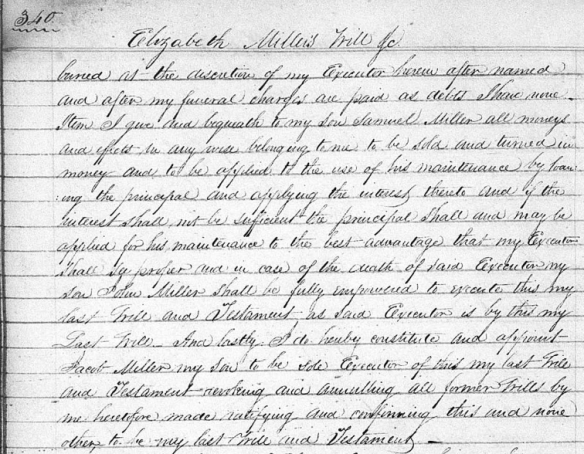 340
Elizabeth Miller's Will &c
buried at the discretion of my Executor herein after named
and after my funeral charges are paid as debts I have none
Item I give and bequeath to my son Samuel Miller all moneys
and effects in any wise belonging to me to be sold and turned in
money and to be applied to the use of his maintenance by loan=
ing the principal and applying the interest thereto and if the
interest shall not be sufficient the principal shall and may be
applied for his maintenance to the best advantage that my Executor
shall see proper and in case of the death of said Executor my
son John Miller shall be fully empowered to execute this my
last Will and Testament as said Executor is by this my
Last Will - And lastly I do hereby constitute and appoint
Jacob Miller my son to be sole Executor of this my last Will
and Testament revoking and annulling all former Wills by
me heretofore made ratifying and confirming this and none
other to be my last Will and Testament -